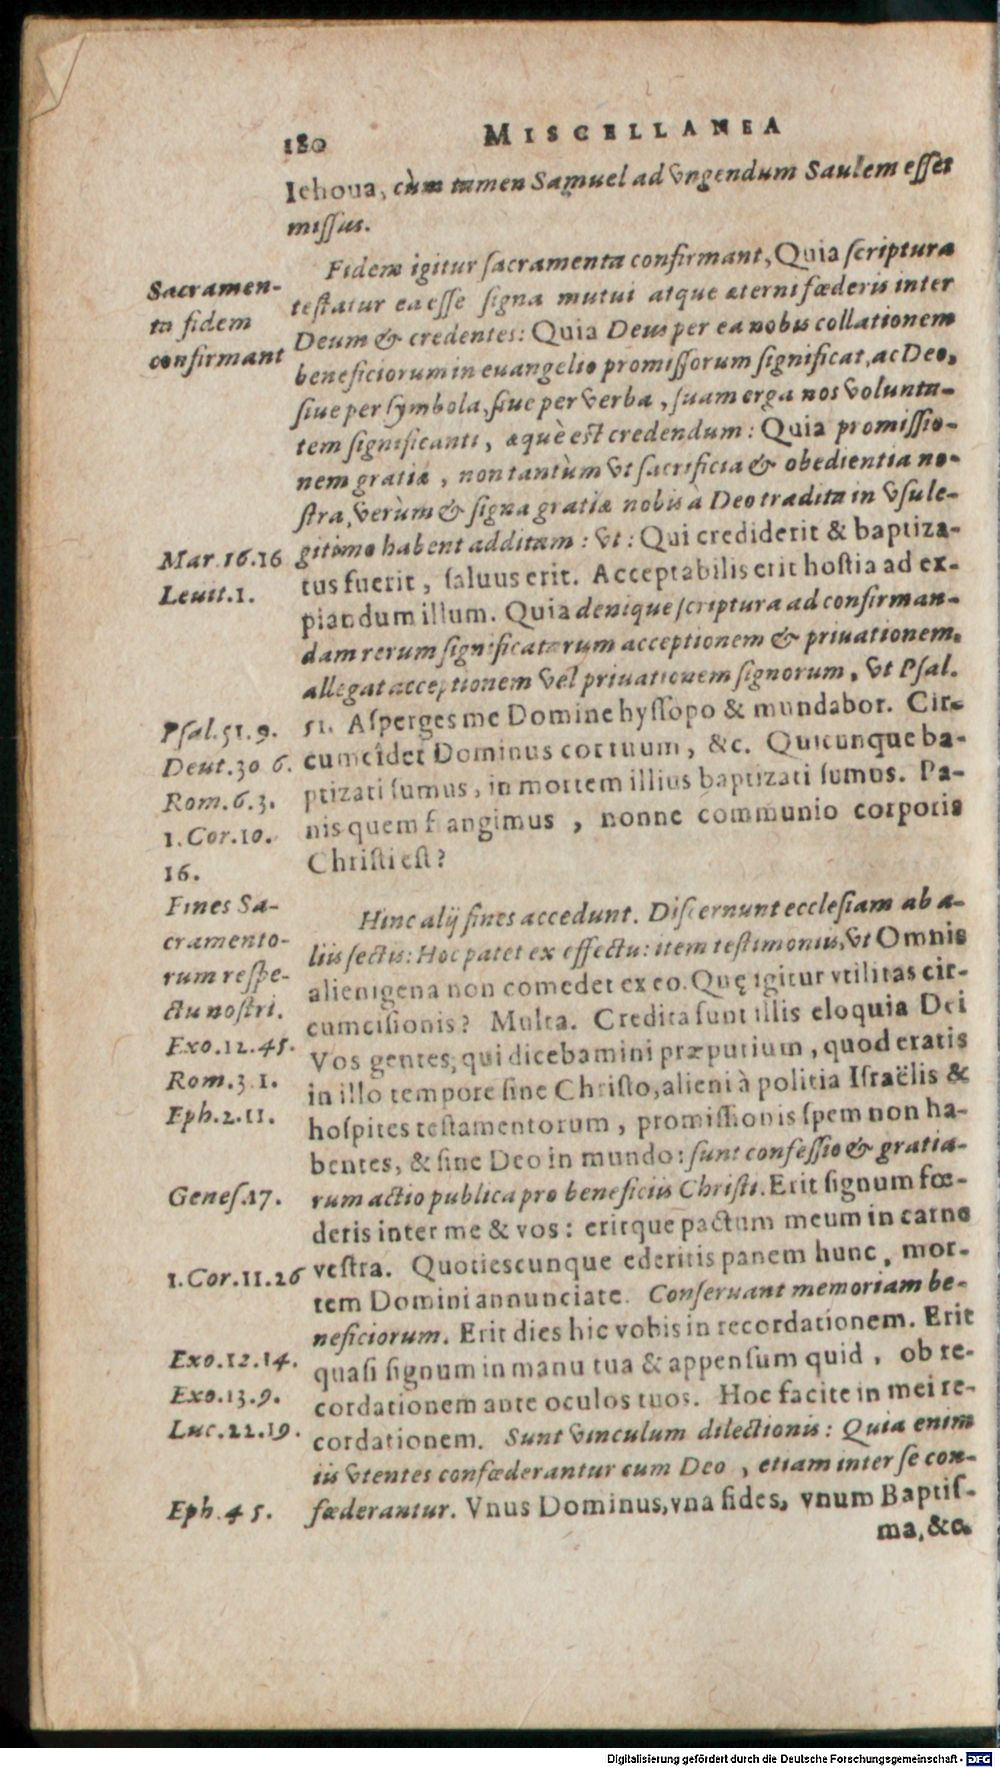 180 MISCELLANEA
Iehoua, cùm tamen Samuel ad vngendum Saulem esset
missus.
Fidem igitur sacramenta confirmant, Quia scriptura
testatur ea esse signa mutui atque æterni fœderis inter
Deum & credentes: Quia Deus per ea nobis collationem
beneficiorum in euangelio promissorum significat, ac Deo,
siue per symbola, siue per verba, suam erga nos volunta-
tem significanti, æquè est credendum: Quia promissio-
nem gratiæ, non tantùm vt sacrificia & obedientia no-
stra, verùm & signa gratiæ nobis à Deo tradita in vsu le-
gitimo habent additam: vt: Qui crediderit & baptiza-
tus fuerit, saluus erit. Acceptabilis erit hostia ad ex-
piandum illum. Quia denique scriptura ad confirman-
dam rerum significatarum acceptionem & priuationem,
allegat acceptionem vel priuationem signorum, vt Psal.
51. Asperges me Domine hyssopo & mundabor. Cir-
cumcîdet Dominus cor tuum, &c. Quicunque ba-
ptizati sumus, in mortem illius baptizati sumus. Pa-
nis quem frangimus, nonne communio corporis
Christi est?
Hinc alij fines accedunt. Discernunt ecclesiam ab a-
liis sectis: Hoc patet ex effectu: item testimoniis, vt Omnis
alienigena non comedet ex eo. Quę igitur vtilitas cir-
cumcisionis? Multa. Credita sunt illis eloquia Dei
Vos gentes, qui dicebamini præputium, quod eratis
in illo tempore sine Christo, alieni à politia Israëlis &
hospites testamentorum, promissionis spem non ha-
bentes, & sine Deo in mundo: sunt confessio & gratia-
rum actio publica pro beneficiis Christi. Erit signum fœ-
deris inter me & vos: eritque pactum meum in carne
vestra. Quotiescunque ederitis panem hunc, mor-
tem Domini annunciate. Conseruant memoriam be-
neficiorum. Erit dies hic vobis in recordationem. Erit
quasi signum in manu tua & appensum quid, ob re-
cordationem ante oculos tuos. Hoc facite in mei re-
cordationem. Sunt vinculum dilectionis: Quia enim
iis vtentes confœderantur cum Deo, etiam inter se con-
fœderantur. Vnus Dominus, vna fides, vnum Baptis-
ma, &c.
Sacramen-
ta fidem
confirmant
Mar. 16.16
Leuit. 1.
Psal. 51. 9.
Deut. 30 6.
Rom. 6. 3.
1. Cor. 10.
16.
Fines Sa-
cramento-
rum respe-
ctu nostri.
Exo. 12. 45.
Rom. 3 1.
Eph. 2. 11.
Genes. 17.
1. Cor. 11. 26
Exo. 12. 14.
Exo. 13. 9.
Luc. 22. 19.
Eph. 4 5.
Digitalisierung gefördert durch die Deutsche Forschungsgemeinschaft - DFG